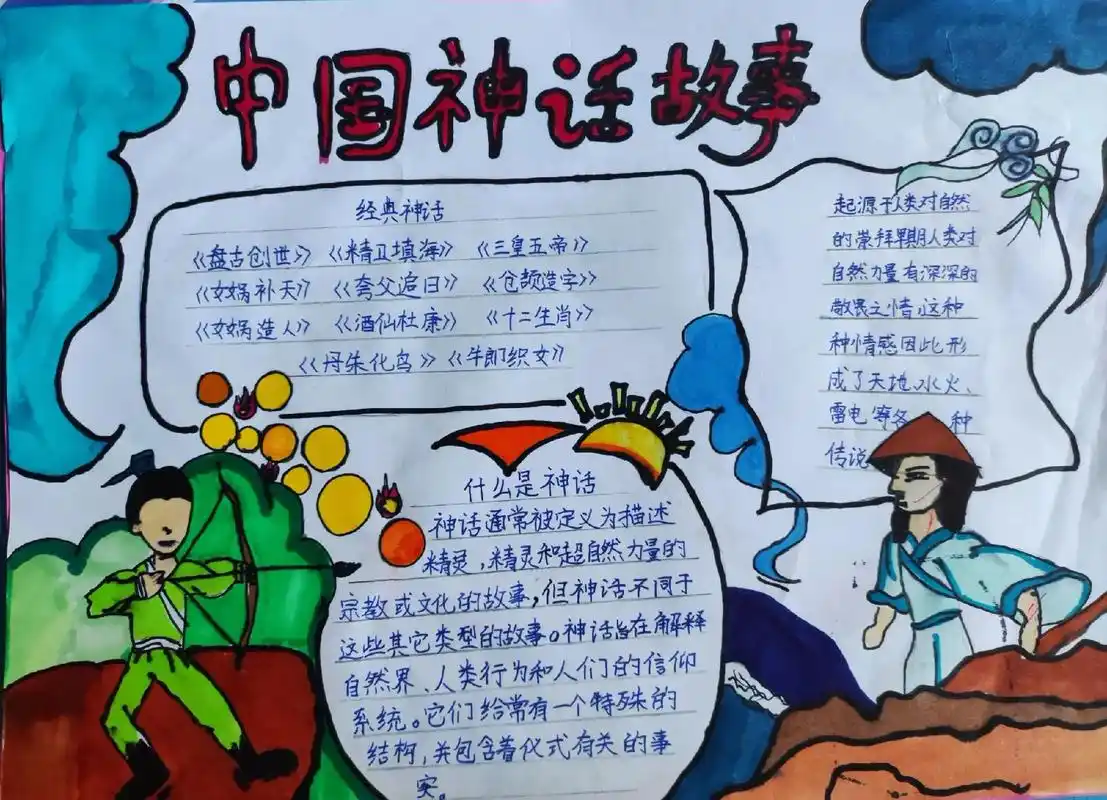 中国神话故事
经典神话
《盘古创世》《精卫填海》《三皇五帝》
《女娲补天》《夸父追日》《仓颉造字》
《女娲造人》《酒仙杜康》《十二生肖》
《丹朱化鸟》《牛郎织女》
起源于人类对自然
的崇拜早期人类对
自然力量有深深的
敬畏之情,这种
种情感因此形
成了天地、水火、
雷电等各 种
传说
什么是神话
神话通常被定义为描述
精灵,精灵和超自然力量的
宗教或文化的故事,但神话不同于
这些其它类型的故事。神话旨在解释
自然界、人类行为和人们的信仰
系统。它们给常有一个特殊的
结构,并包含着仪式有关的事
实。